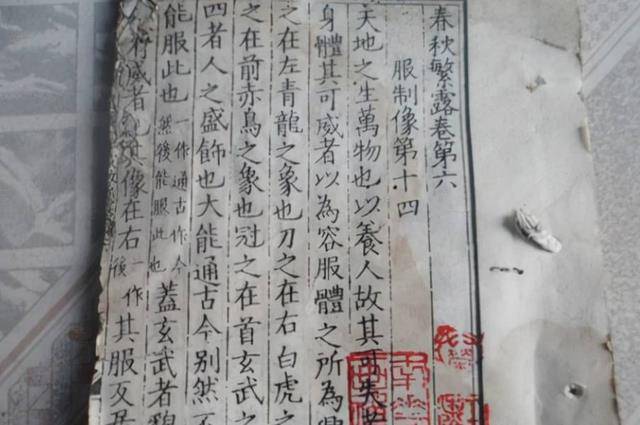 春秋繁露卷第六
服制像第十四
天地之生萬物也以養人故其可
身體其可威者以為容服體之所為
之在左青龍之象也刀之在右白虎之
之在前赤鳥之象也冠之在首玄武之
四者人之盛飾也大能通古今別然不
能服此也一作通古作今然後能服此也蓋玄武者貌
威者也其像在右一作後其服反居